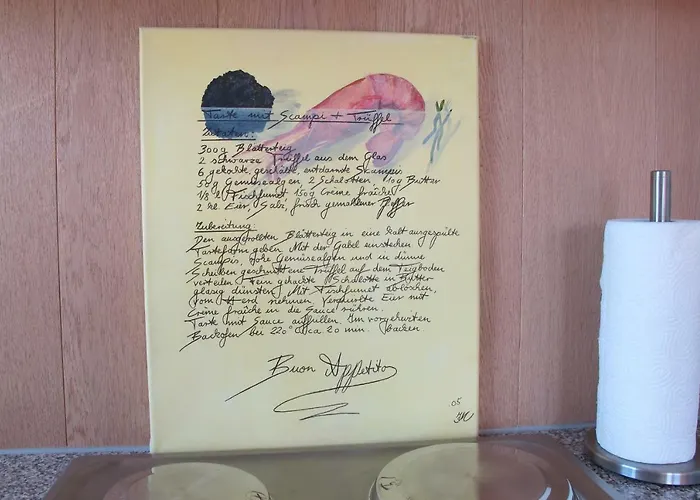 Tarte mit Scampi + Trüffel
Zutaten:
300g Blätterteig
2 schwarze Trüffel aus dem Glas
6 gekochte, geschälte, entdarmte Skampis
50g Gemüsealgen, 2 Schalotten, 10g Butter
1/8 l Fischfumet 150g Crème fraîche
2 kl. Eier, Salz, frisch gemahlener Pfeffer
Zubereitung:
Den ausgerollten Blätterteig in eine kalt ausgespülte
Tarteform geben. Mit der Gabel einstechen
Scampis, rohe Gemüsealgen und in dünne
Scheiben geschnittene Trüffel auf dem Teigboden
verteilen. Fein gehackte Schalotte in Butter
glasig dünsten. Mit Fischfumet ablöschen,
vom Herd nehmen. Verquirlte Eier mit
Crème fraîche in die Sauce rühren.
Tarte mit Sauce auffüllen. Im vorgeheizten
Backofen bei 220° ca. 20 min. backen
Buon Appetito
05